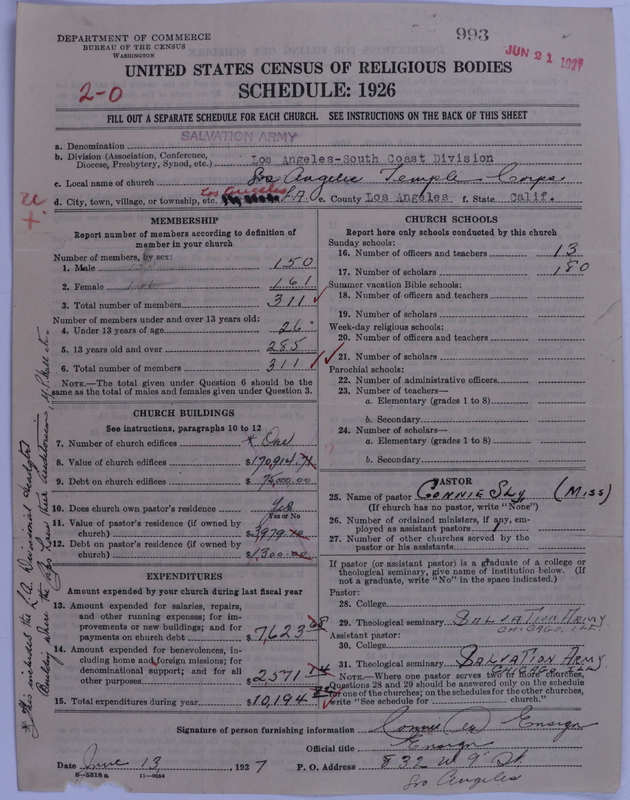 DEPARTMENT OF COMMERCE
BUREAU OF THE CENSUS
WASHINGTON
993
JUN 21 1927
UNITED STATES CENSUS OF RELIGIOUS BODIES
2-0
SCHEDULE: 1926
FILL OUT A SEPARATE SCHEDULE FOR EACH CHURCH. SEE INSTRUCTIONS ON THE BACK OF THIS SHEET
a. Denomination SALVATION ARMY
b. Division (Association, Conference, Diocese, Presbytery, Synod, etc.) Los Angeles-South Coast Division
c. Local name of church Los Angeles Temple Corps
d. City, town, village, or township, etc. Los Angeles L.A. e. County Los Angeles f. State Calif.
MEMBERSHIP
Report number of members according to definition of
member in your church
Number of members, by sex:
1. Male 150
2. Female 161
3. Total number of members 311
Number of members under and over 13 years old:
4. Under 13 years of age 26
5. 13 years old and over 285
6. Total number of members 311
NOTE.—The total given under Question 6 should be the
same as the total of males and females given under Question 3.
CHURCH BUILDINGS
See instructions, paragraphs 10 to 12
7. Number of church edifices * One
8. Value of church edifices $170,914.71
9. Debt on church edifices $75,000.00
10. Does church own pastor's residence Yes
Yes or No
11. Value of pastor's residence (if owned by
church) $3979.40
12. Debt on pastor's residence (if owned by
church) $1,300.00
EXPENDITURES
Amount expended by your church during last fiscal year
13. Amount expended for salaries, repairs,
and other running expenses; for im-
provements or new buildings; and for
payments on church debt $7,623.68
14. Amount expended for benevolences, in-
cluding home and foreign missions; for
denominational support; and for all
other purposes $2571.14
15. Total expenditures during year $10,194
CHURCH SCHOOLS
Report here only schools conducted by this church
Sunday schools:
16. Number of officers and teachers 13
17. Number of scholars 180
Summer vacation Bible schools:
18. Number of officers and teachers
19. Number of scholars
Week-day religious schools:
20. Number of officers and teachers
21. Number of scholars
Parochial schools:
22. Number of administrative officers
23. Number of teachers—
a. Elementary (grades 1 to 8)
b. Secondary
24. Number of scholars—
a. Elementary (grades 1 to 8)
b. Secondary
PASTOR
25. Name of pastor CONNIE SLY (MISS)
(If church has no pastor, write "None")
26. Number of ordained ministers, if any, em-
ployed as assistant pastors 1
27. Number of other churches served by the
pastor or his assistants
If pastor (or assistant pastor) is a graduate of a college or
theological seminary, give name of institution below. (If
not a graduate, write "No" in the space indicated.)
Pastor:
28. College
29. Theological seminary SALVATION ARMY
CHICAGO, ILL
Assistant pastor:
30. College
31. Theological seminary SALVATION ARMY
CHICAGO, ILL
NOTE.—Where one pastor serves two or more churches,
Questions 28 and 29 should be answered only on the schedule
for one of the churches; on the schedules for the other churches,
write "See schedule for church."
Signature of person furnishing information Connie Sly Ensign
Official title Ensign
Date June 13, 1927 P. O. Address 832 W 9" St.
Los Angeles
8-5518a 11-9054
* This includes the L.A. Divisional Headqtrs
Building where the have their Auditorium, Y.P. Hall etc.